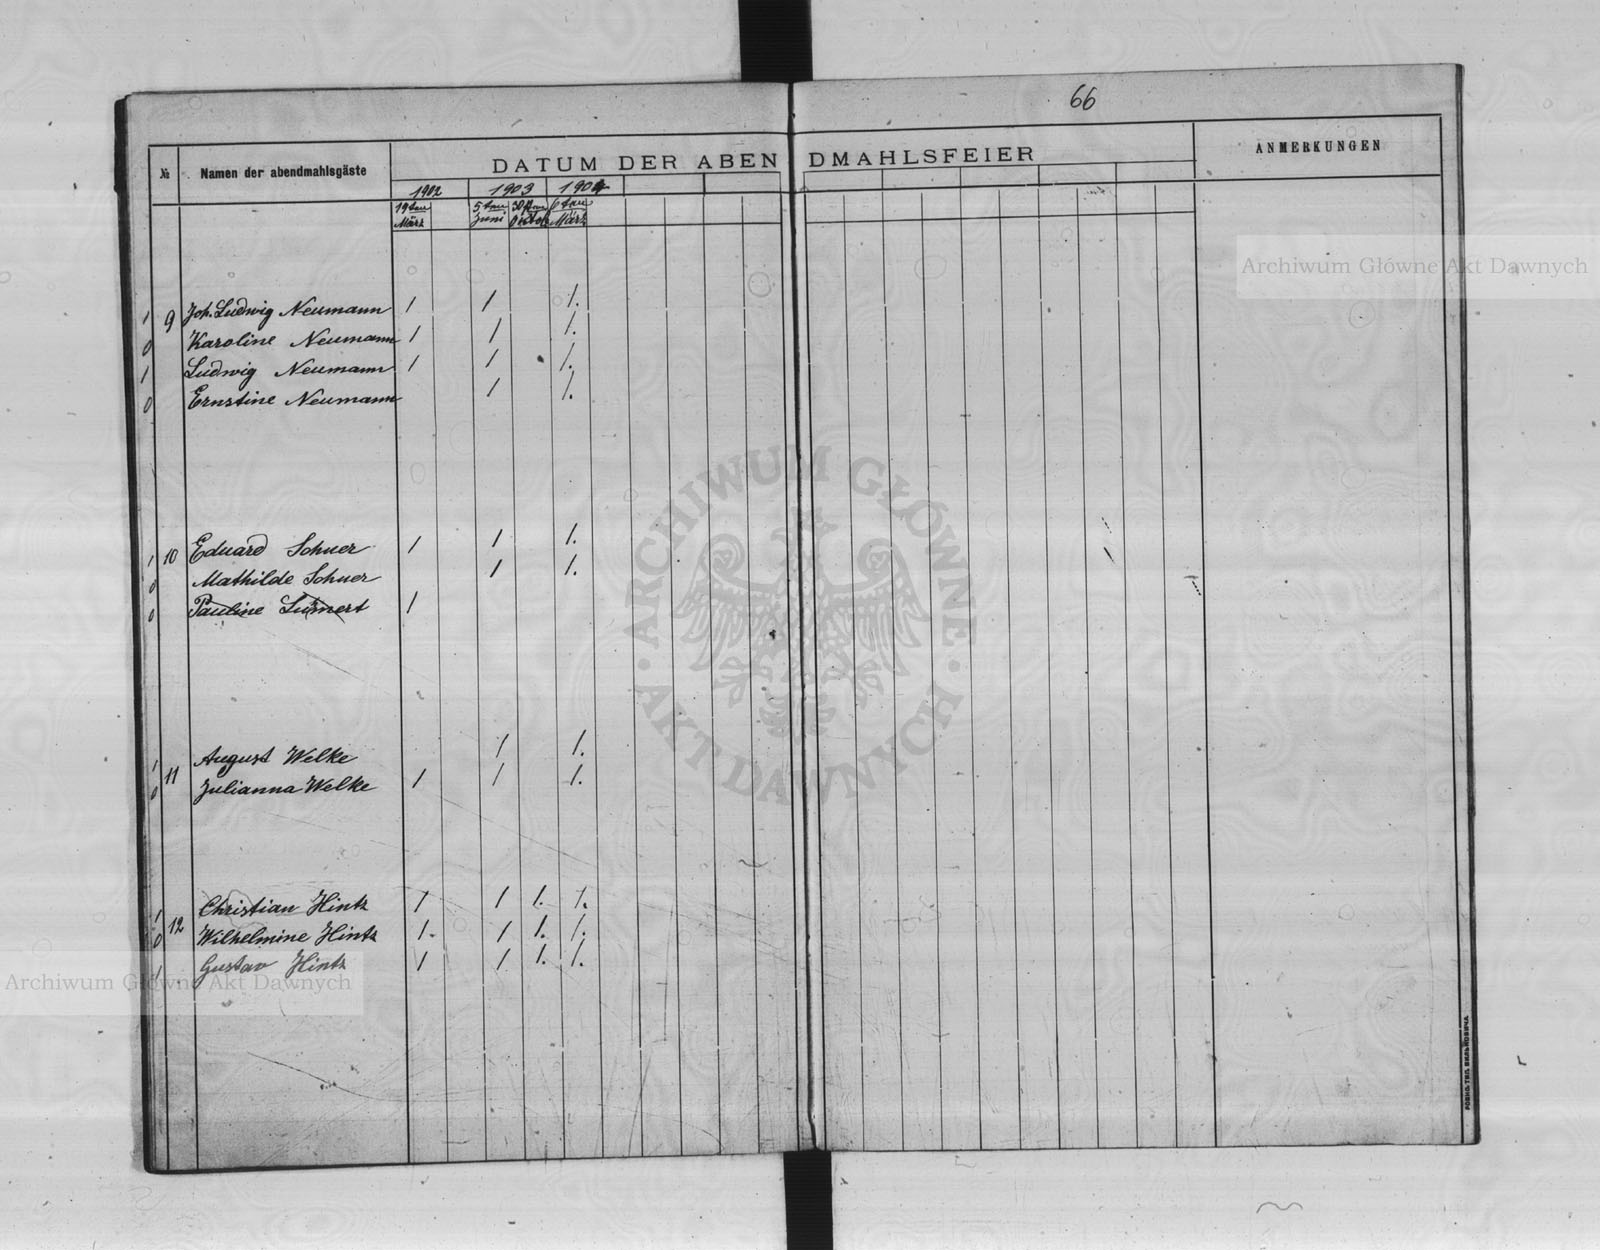 66
№ Namen der abendmahlsgäste DATUM DER ABENDMAHLSFEIER ANMERKUNGEN
1902 1903 1904
19ten März 5ten Juni 30ten Octob 6ten März
1 9 Joh. Ludwig Neumann 1 1 1.
0 Karoline Neumann 1 1 1.
1 Ludwig Neumann 1 1 1.
0 Ernstine Neumann 1 1.
1 10 Eduard Sohner 1 1 1.
0 Mathilde Sohner 1 1.
0 Pauline 1
1 August Welke 1 1.
0 11 Julianna Welke 1 1 1.
1 Christian Hintz 1 1 1. 1.
0 12 Wilhelmine Hintz 1. 1 1. 1.
1 Gustav Hintz 1 1 1. 1.
Archiwum Główne Akt Dawnych
ARCHIWUM GŁÓWNE · AKT DAWNYCH ·
Archiwum Główne Akt Dawnych